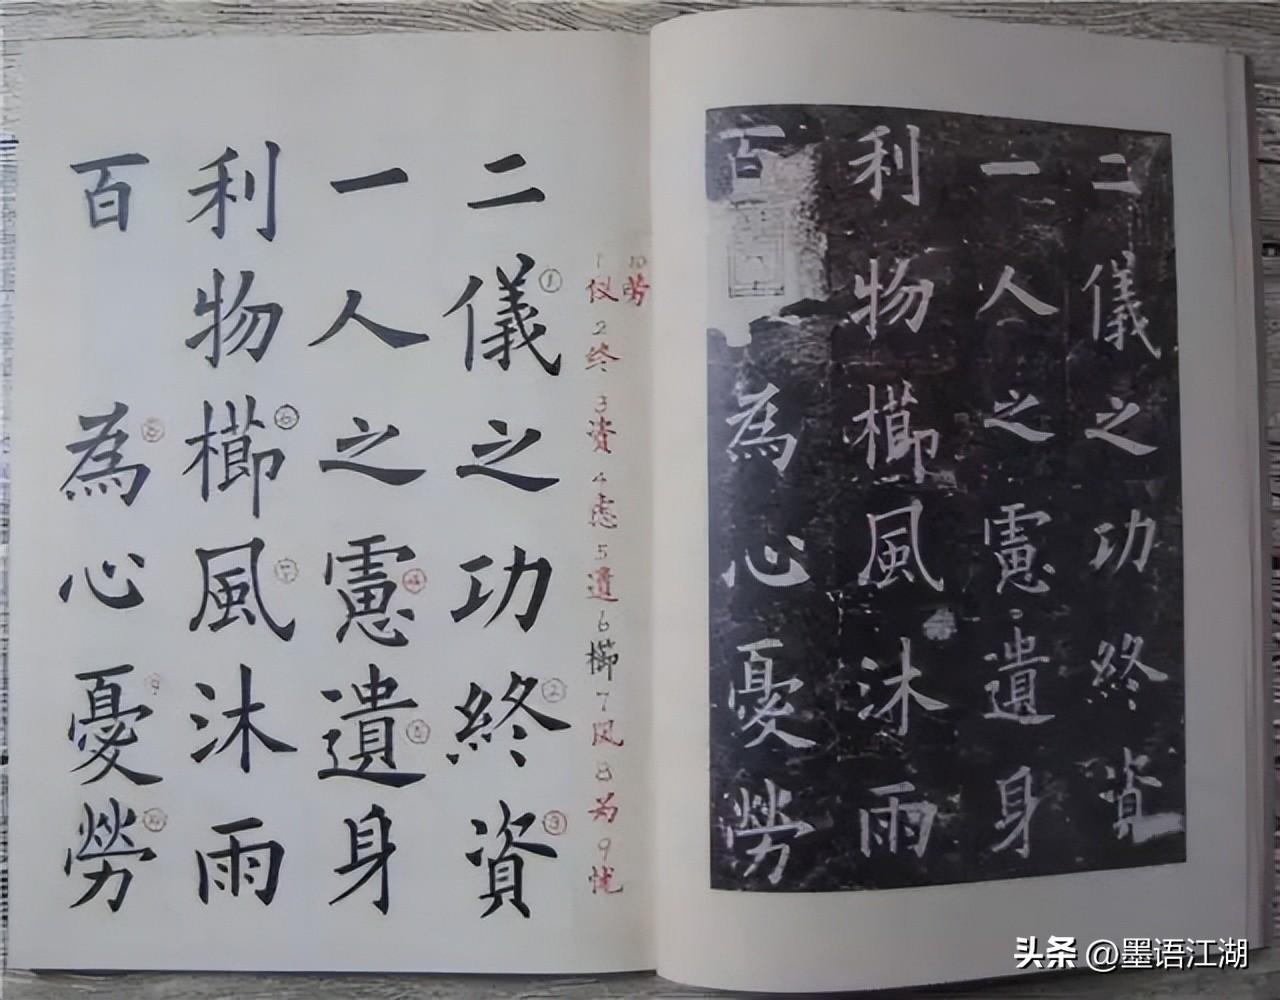 二儀之功終資
一人之慮遺身
利物櫛風沐雨
百 為心憂勞
1仪2终3资4虑5遗6櫛7风8为9忧
10劳
二儀之功終資
一人之慮遺身
利物櫛風沐雨
百 為心憂勞
头条 @墨语江湖